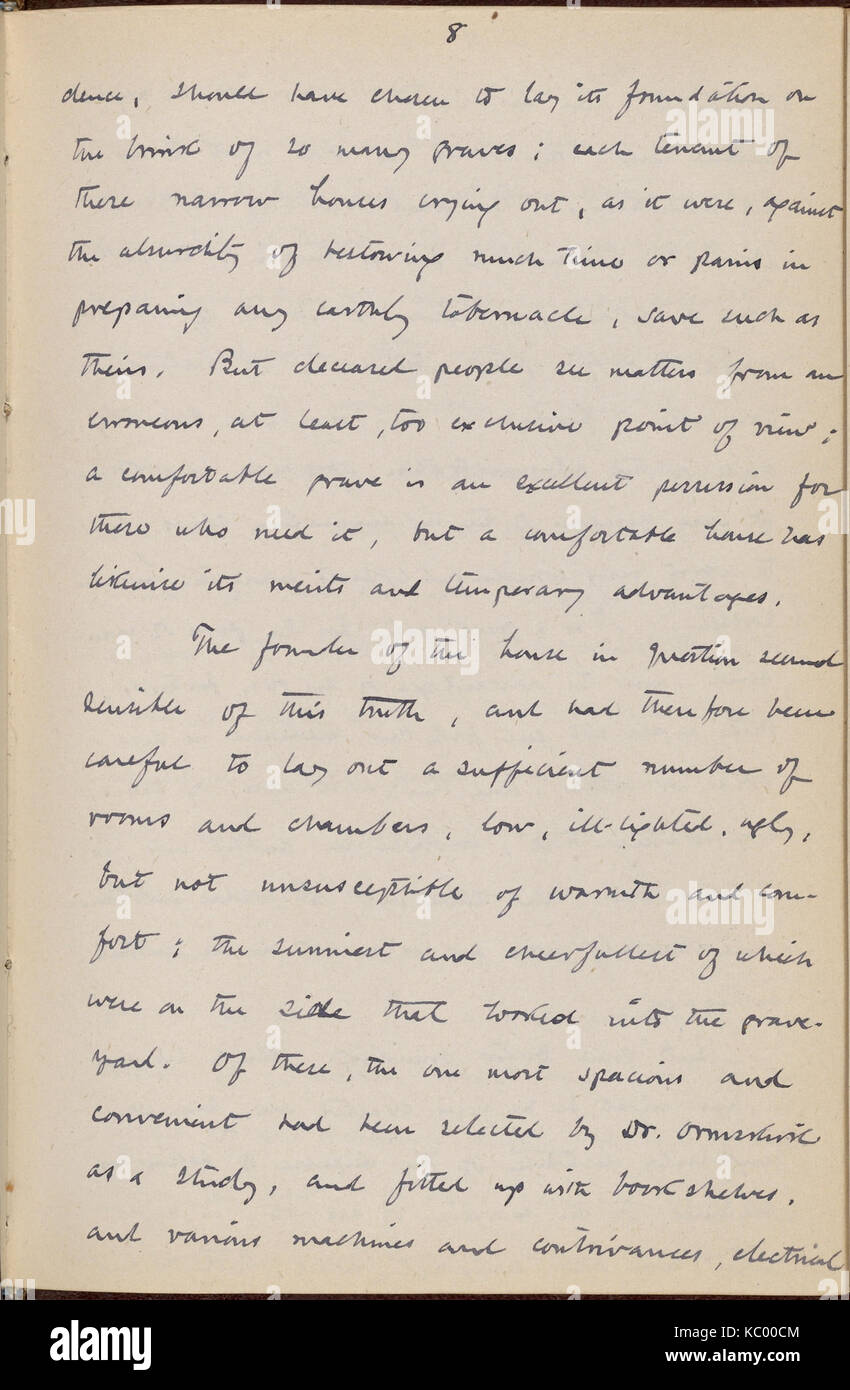 8
dence, should have chosen to lay its foundation on
the brink of so many graves; each tenant of
these narrow houses crying out, as it were, against
the absurdity of bestowing much time or pains in
preparing any earthly tabernacle, save such as
theirs. But deceased people see matters from an
erroneous, at least, too exclusive point of view;
a comfortable grave is an excellent possession for
those who need it, but a comfortable house has
likewise its merits and temporary advantages.
The founder of the house in question seemed
sensible of this truth, and had therefore been
careful to lay out a sufficient number of
rooms and chambers, low, ill-lighted, ugly,
but not unsusceptible of warmth and com-
fort; the sunniest and cheerfullest of which
were on the side that looked into the grave-
yard. Of these, the one most spacious and
convenient had been selected by Dr. Ormskirk
as a study, and fitted up with bookshelves,
and various machines and contrivances, electrical
alamy
a
alamy stock photo
Image ID: KC00CM
www.alamy.com